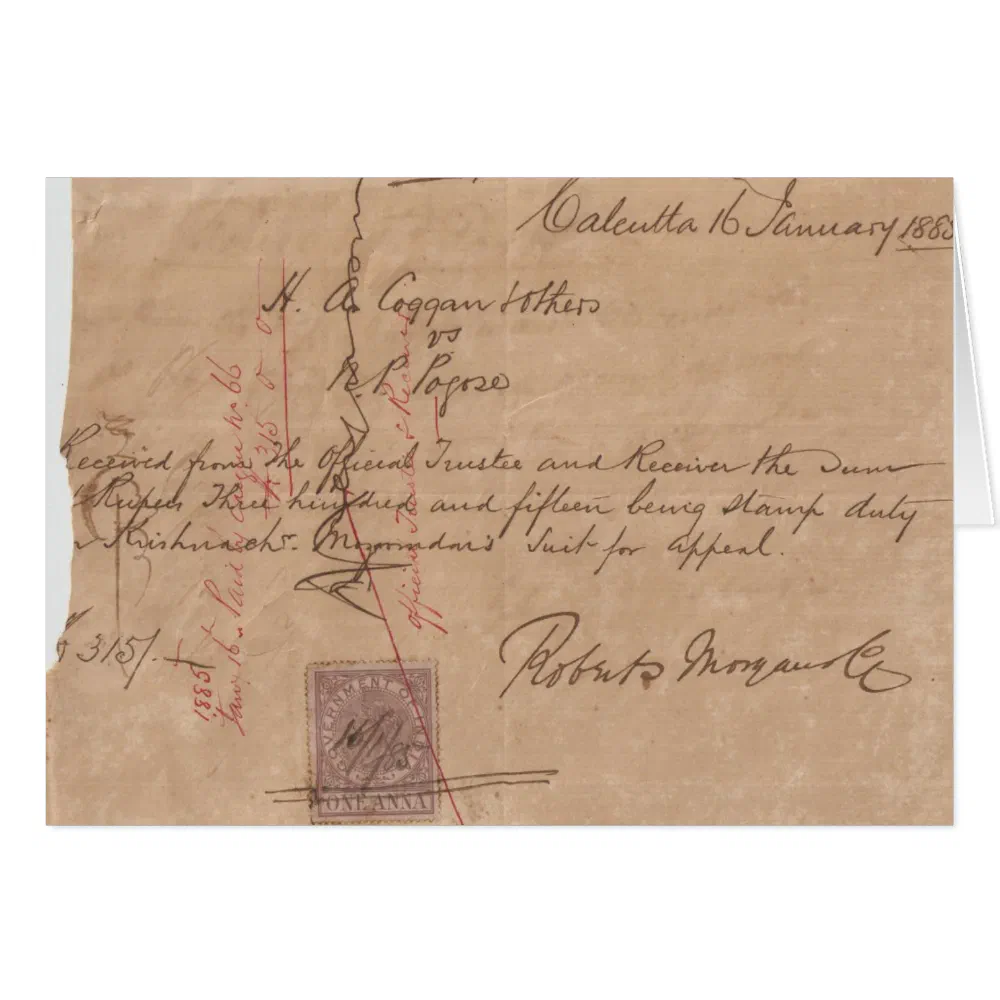 Calcutta 16 January 1885
H. A. Coggan & others
vs
N. P. Pogose
Received from the Official Trustee and Receiver the Sum
Rupees Three hundred and fifteen being stamp duty
Krishna chr. Suit for appeal.
315/.
Roberts Morgan & Co
1885
Jany 16 Paid No. 66
315 0 0
Official Trustee & Receiver
GOVERNMENT OF INDIA
16/1/85
ONE ANNA